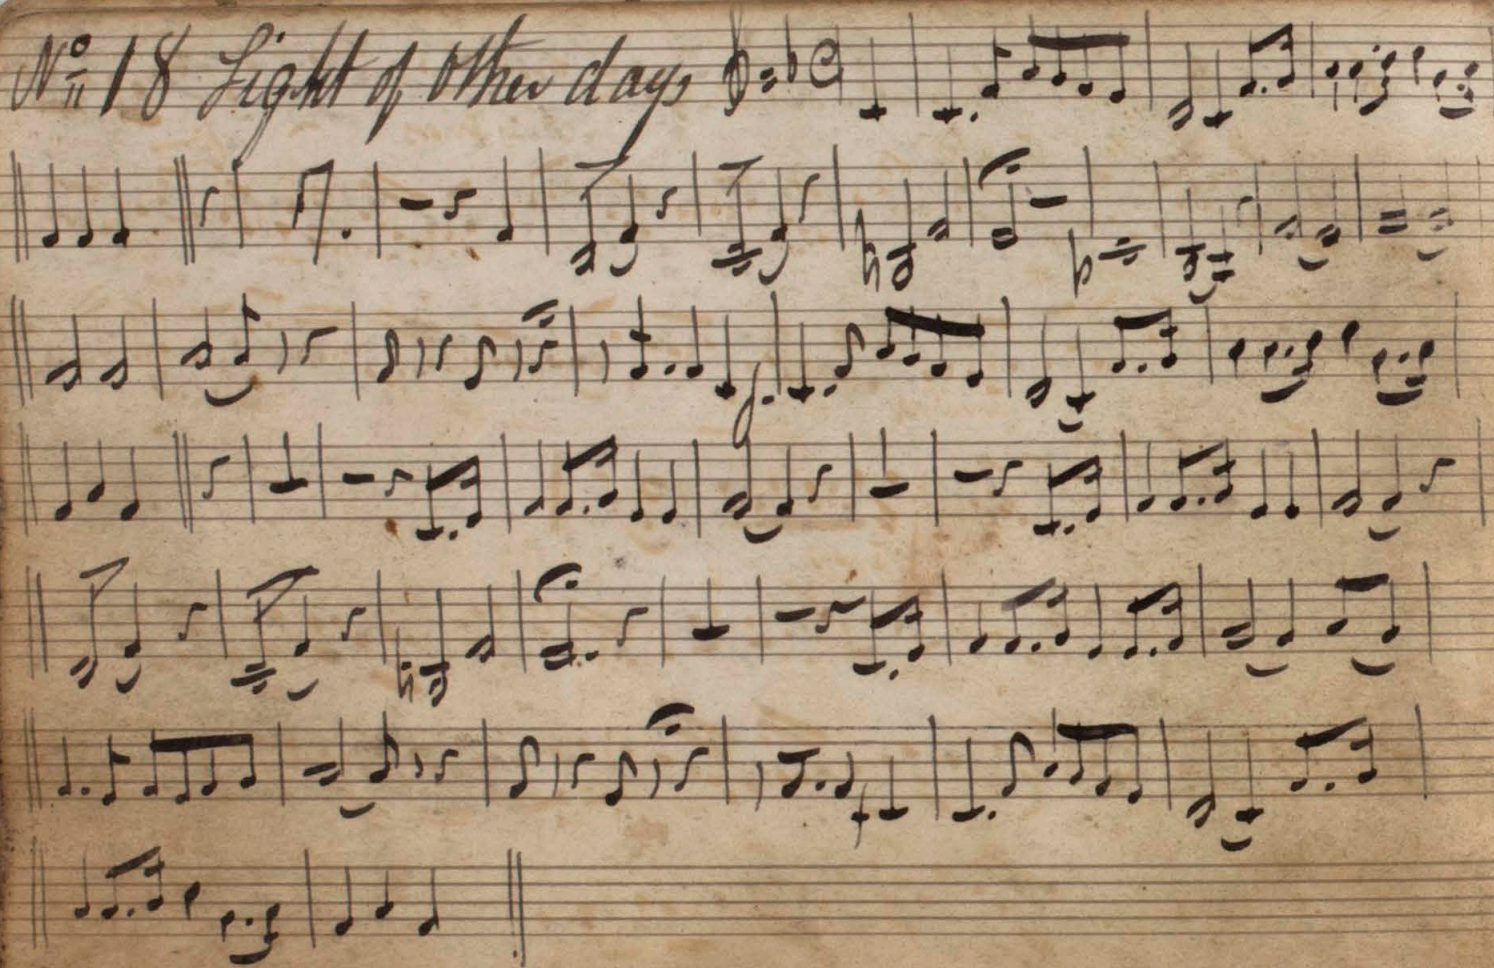 Nº 18 Light of Other days